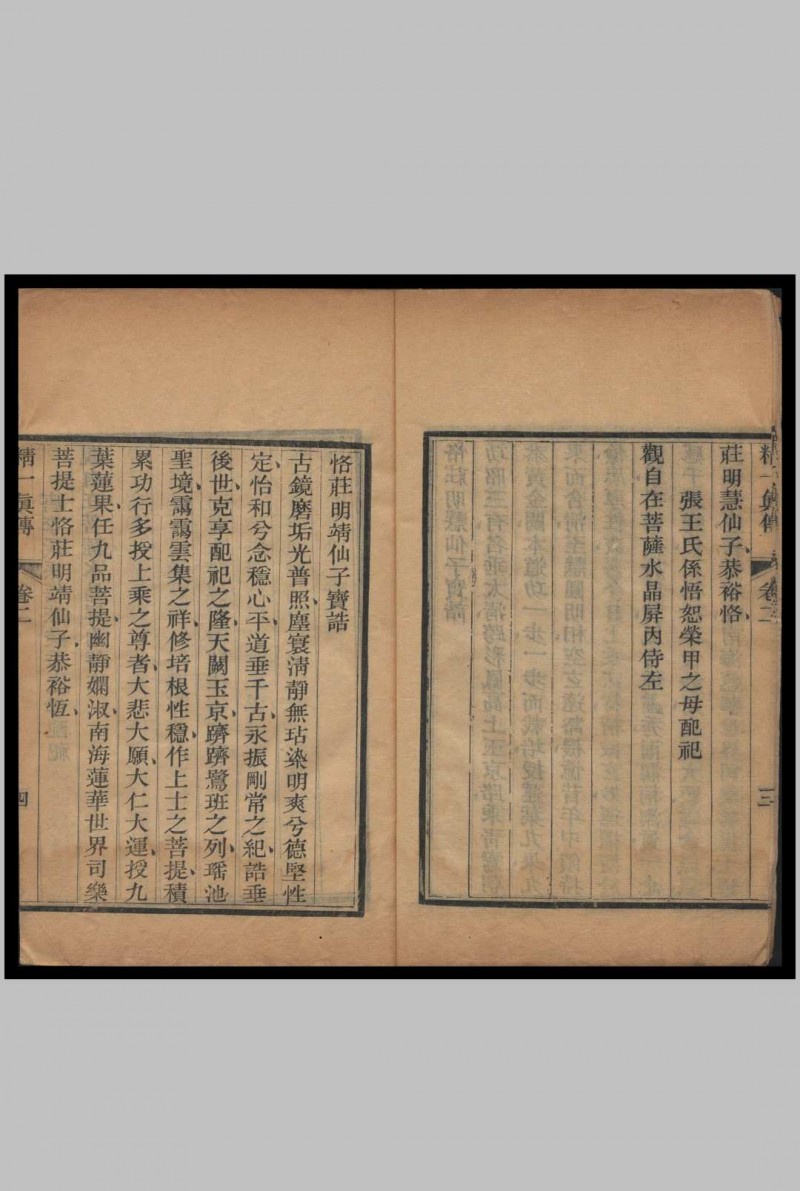 精一眞傳 卷二 三
莊明慧仙子恭裕恪
張王氏係悟恕榮甲之母配祀
觀自在菩薩水晶屏丙侍左
恪莊明靖仙子寶誥
古鏡磨垢光普照、塵寰淸靜無玷染明爽兮德堅性
定、怡和兮念穩心平、道垂千古、永振剛常之紀、誥垂
後世、克享配祀之隆、天闕玉京、躋躋鷺班之列、瑤池
聖境、靄靄雲集之祥、修培根性穩、作上士之菩提、積
累功行多、授上乘之尊者、大悲大願、大仁大運、授九
葉蓮果、任九品菩提、幽靜嫻淑、南海蓮華世界司樂
菩提士恪莊明靖仙子、恭裕恆、
精一眞傳 卷二 四